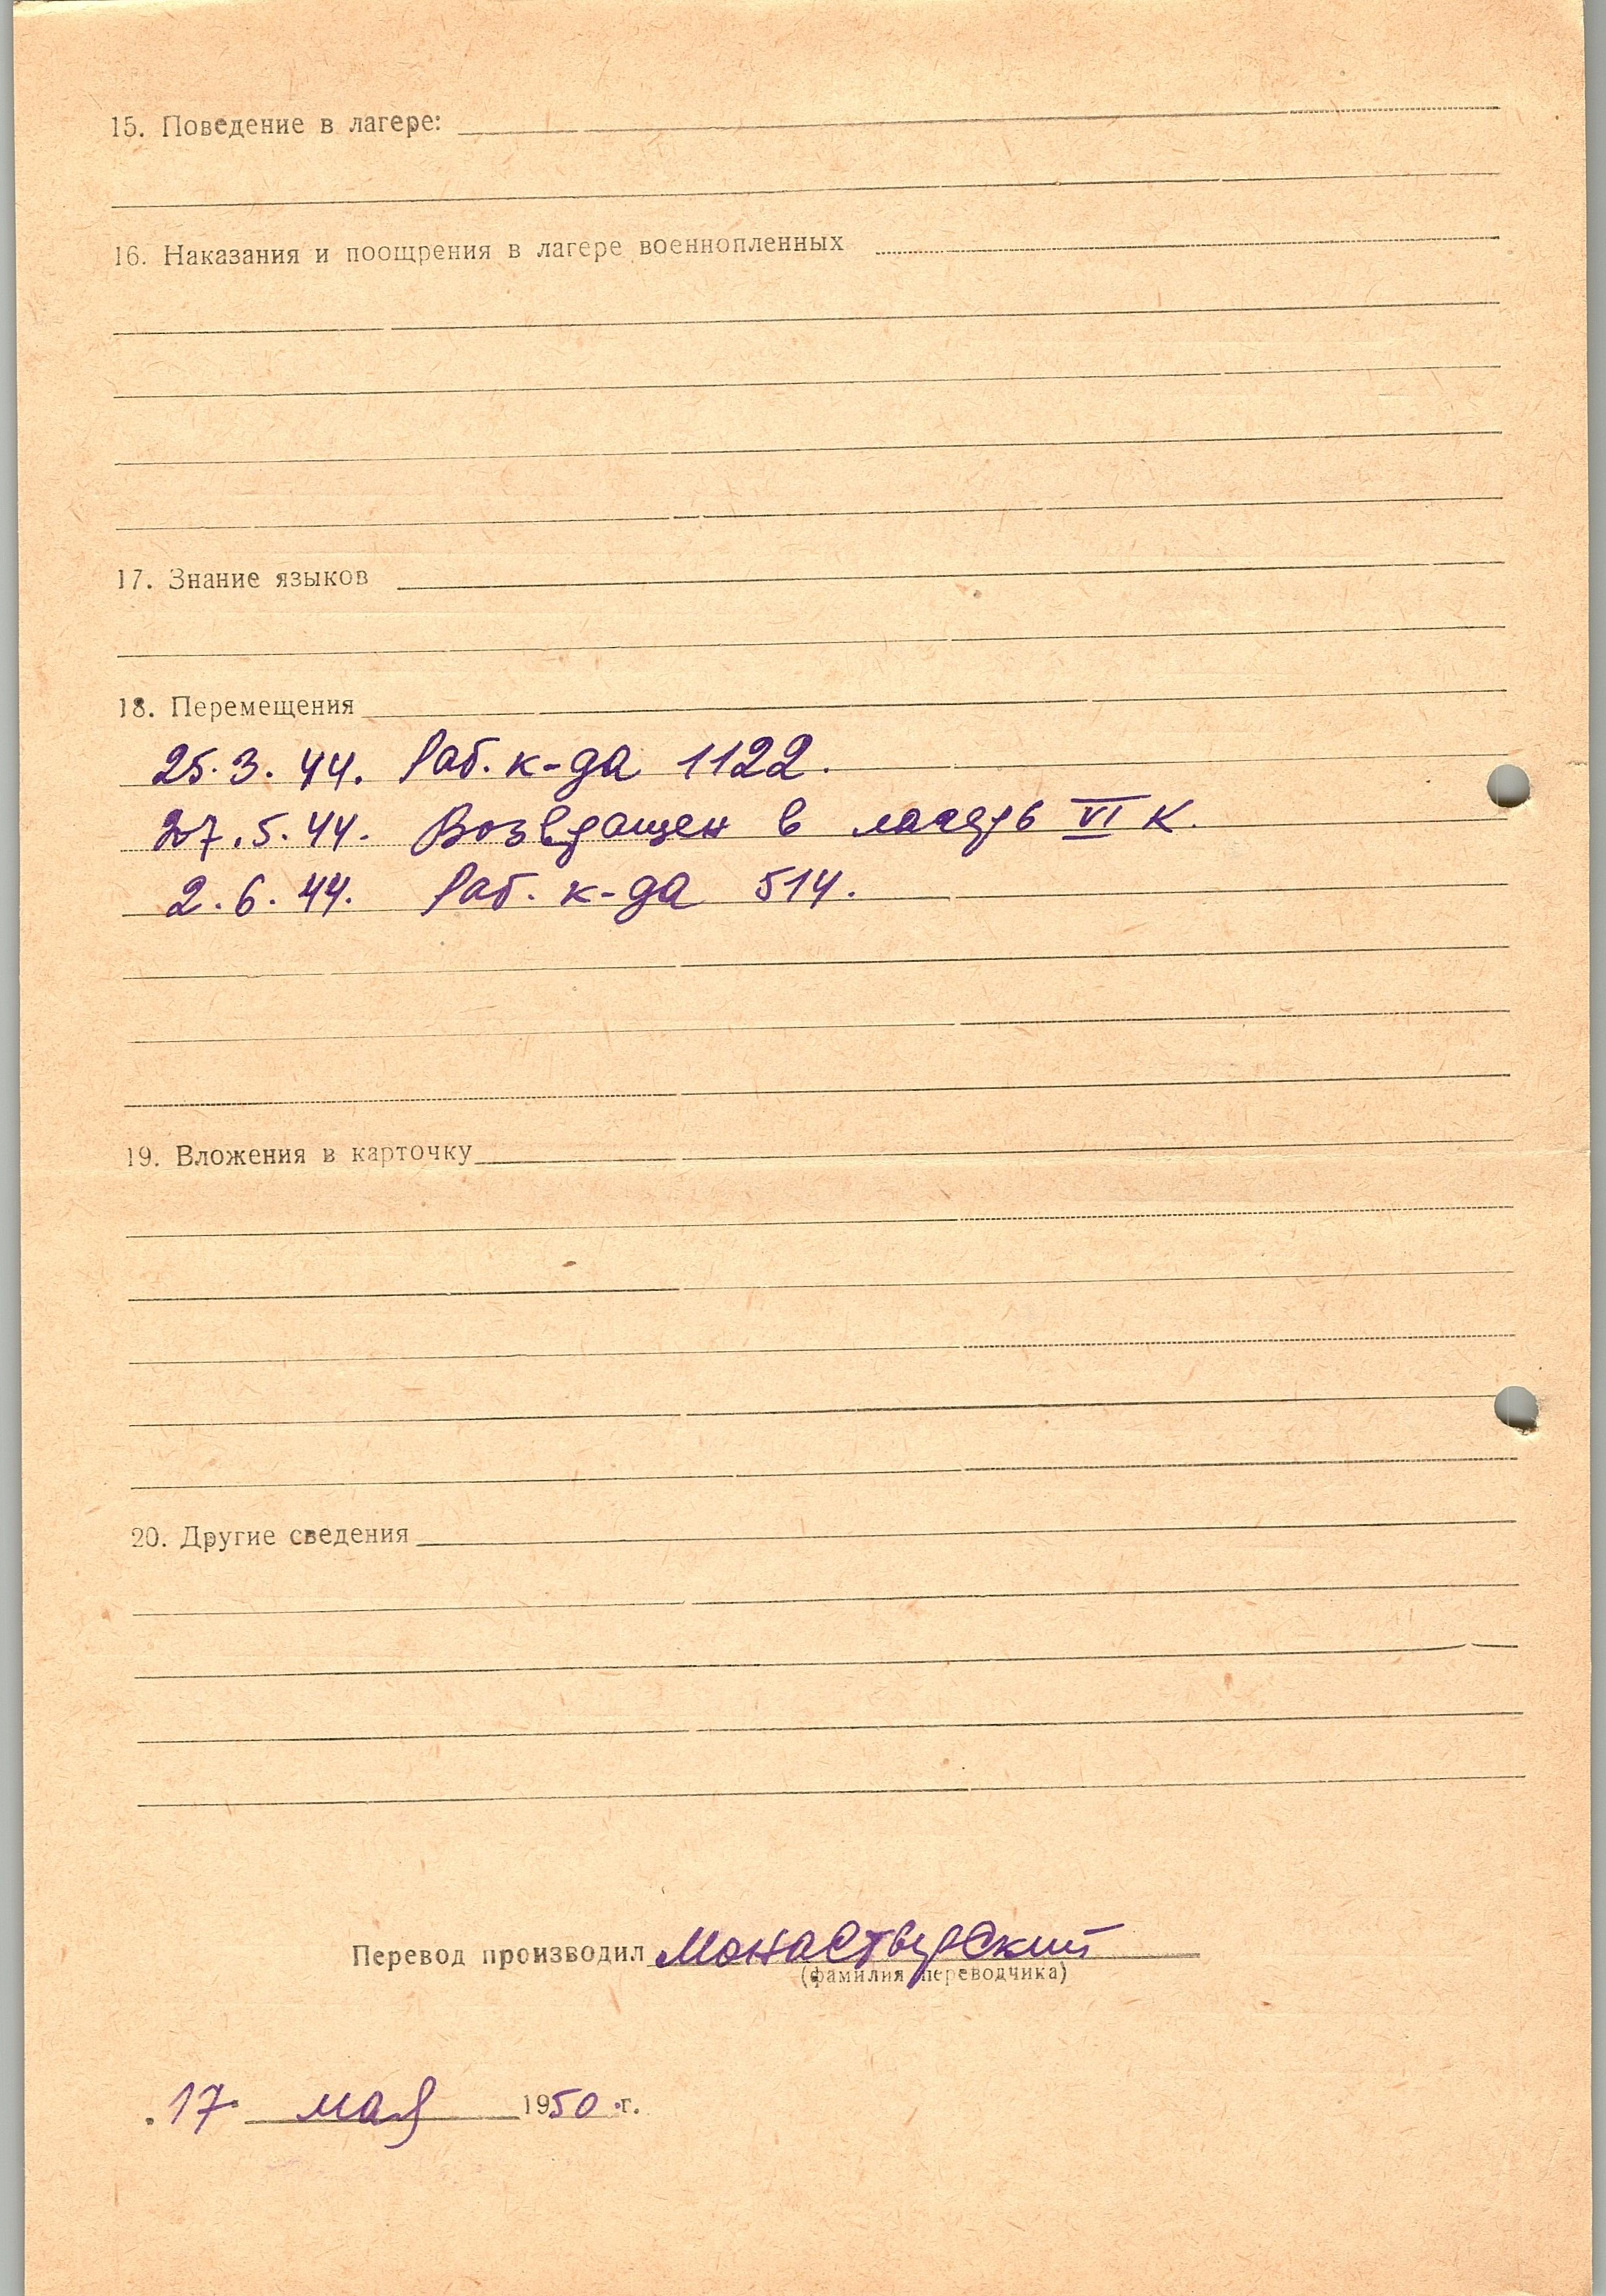 15. Поведение в лагере:
16. Наказания и поощрения в лагере военнопленных
17. Знание языков
18. Перемещения
25.3.44. Раб. к-да 1122.
27.5.44. Возвращен в лагерь VI К.
2.6.44. Раб. к-да 514.
19. Вложения в карточку
20. Другие сведения
Перевод производил Монастырский
(фамилия переводчика)
17 мая 1950 г.